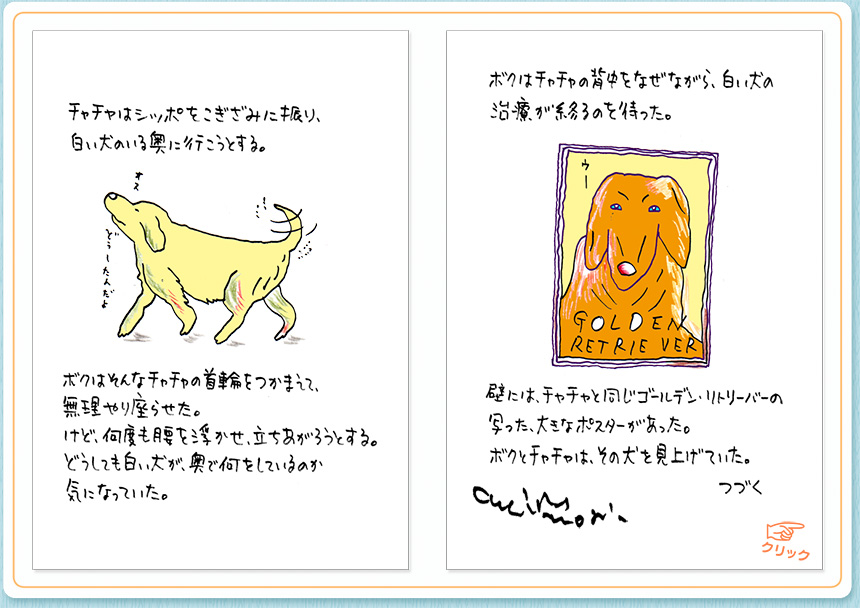 チャチャはシッポをこぎざみに振り、
白い犬のいる奥に行こうとする。
オス
どうしたんだよ
ボクはそんなチャチャの首輪をつかまえて、
無理やり座らせた。
けど、何度も腰を浮かせ、立ちあがろうとする。
どうしても白い犬が、奥で何をしているのか
気になっていた。
ボクはチャチャの背中をなぜながら、白い犬の
治療が終るのを待った。
ゥー
GOLDEN
RETRIEVER
壁には、チャチャと同じゴールデン・リトリーバーの
写った、大きなポスターがあった。
ボクとチャチャは、その犬を見上げていた。
つづく
クリック